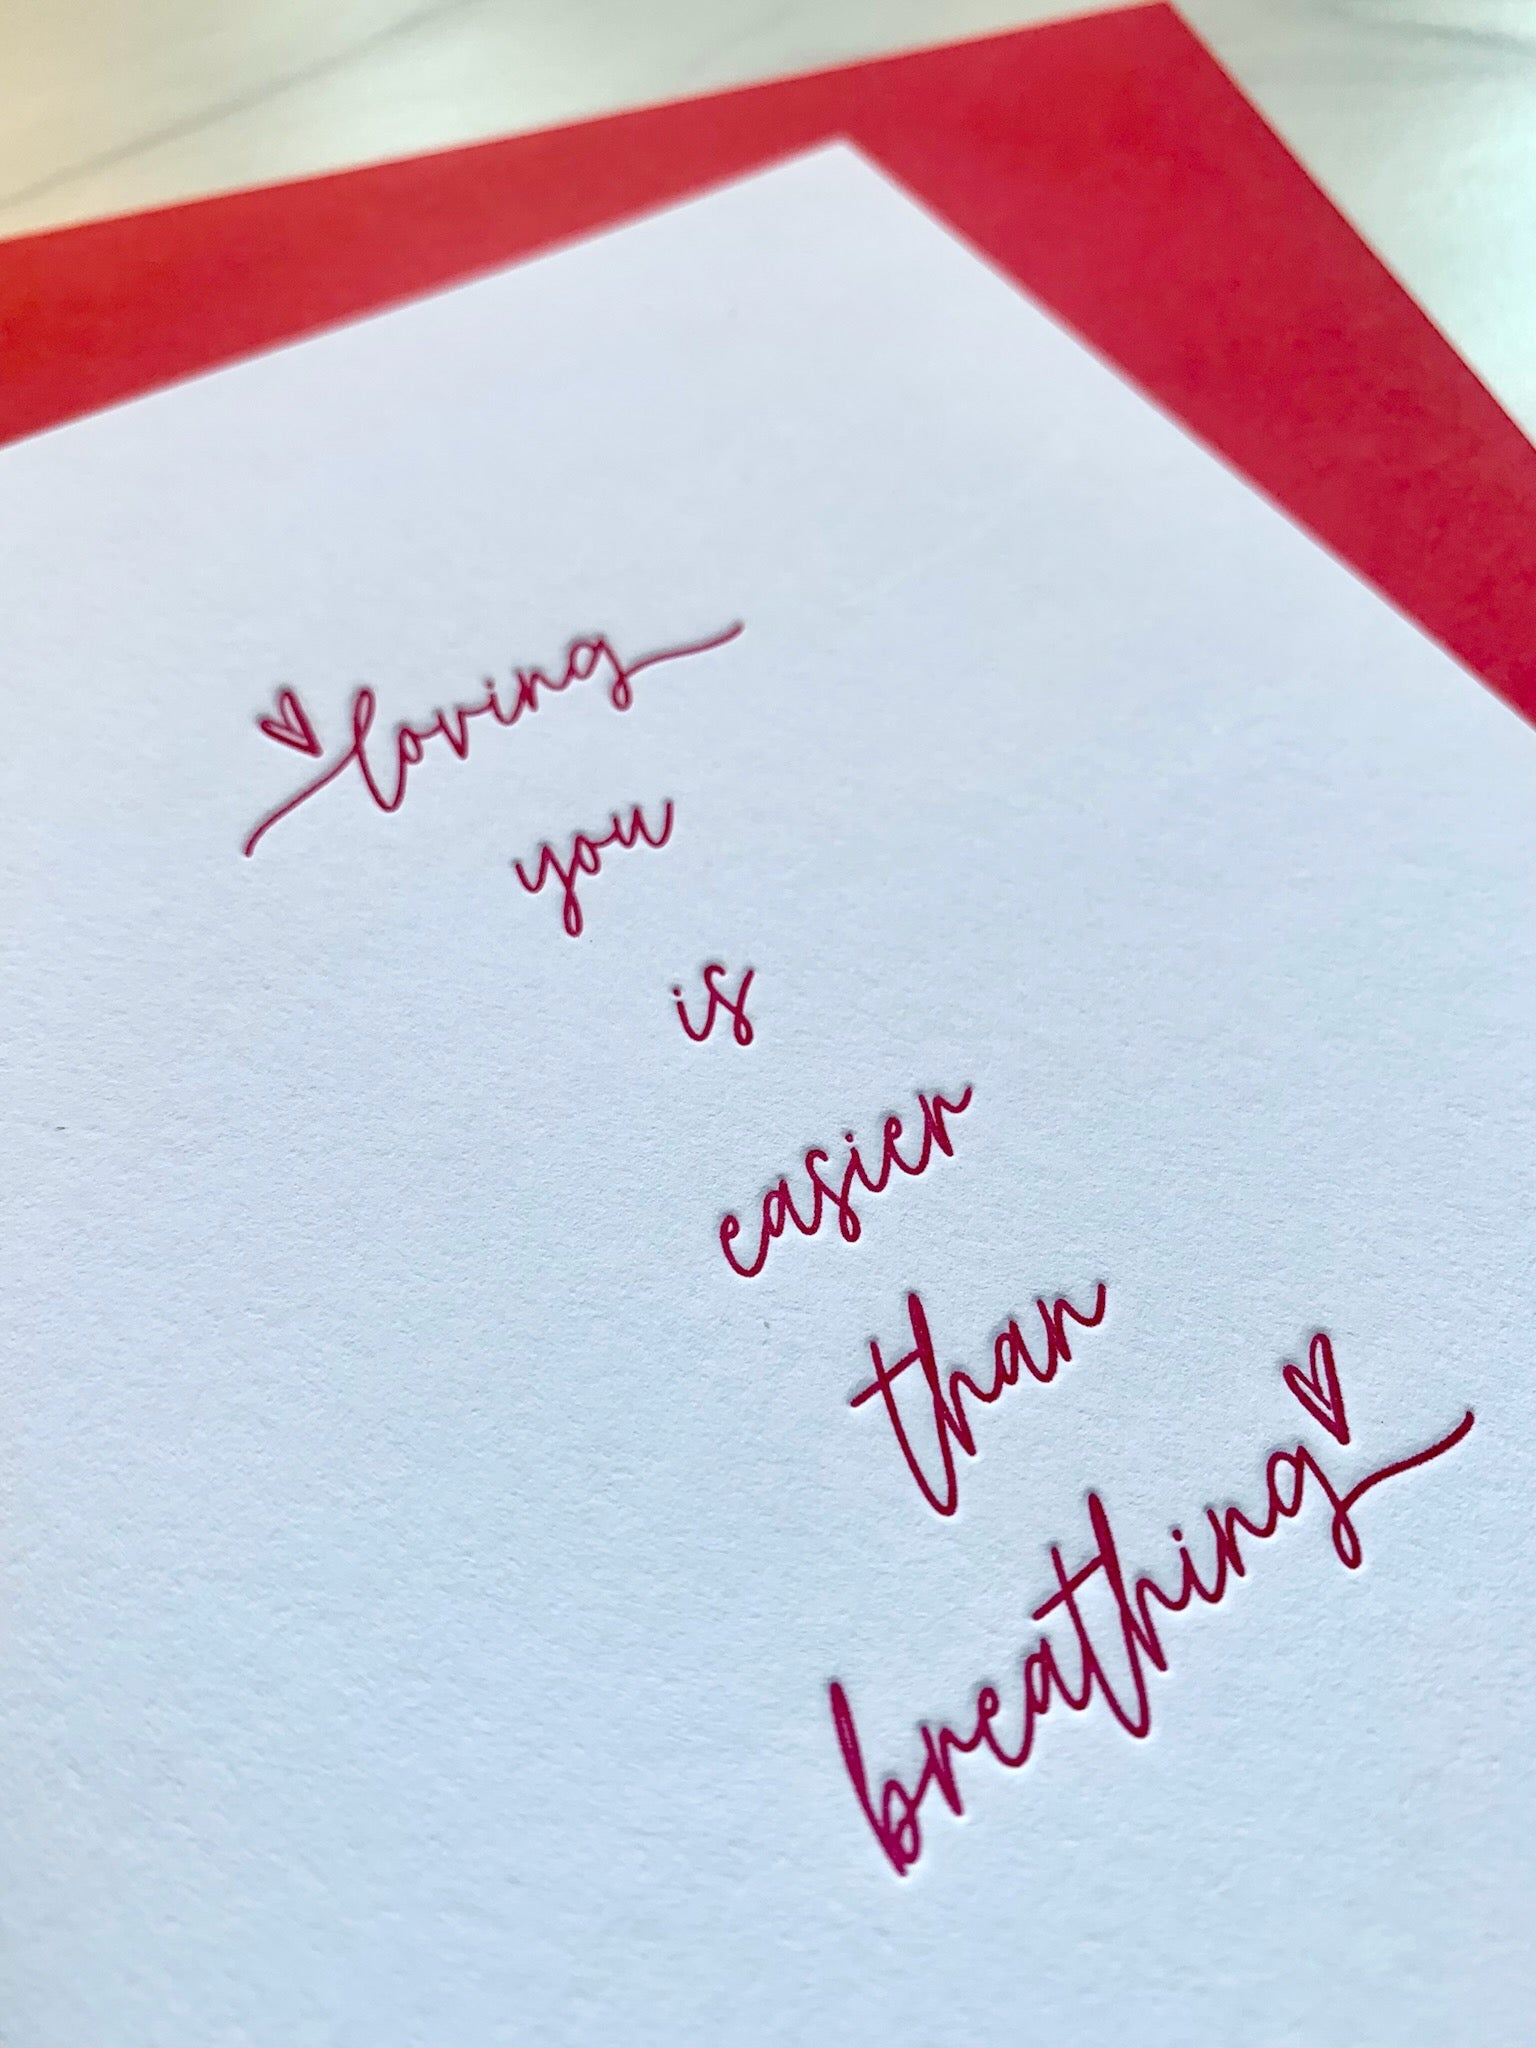 loving
you
is
easier
than
breathing